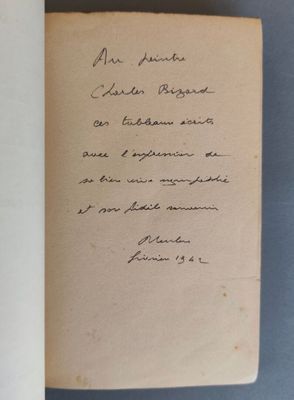 Au peintre
Charles Bizard
ces tableaux écrits,
avec l'expression de
sa bien vive sympathie
et son fidèle souvenir
février 1942